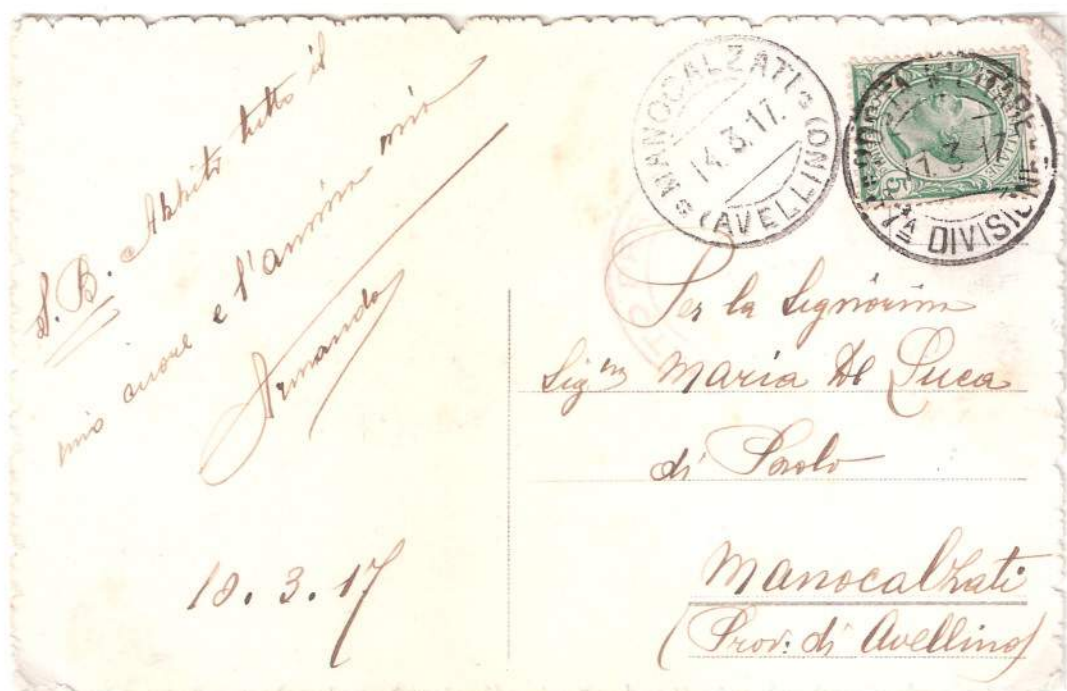 S. B. Abbiti tutto il
mio cuore e l'anima mia
Armando
10. 3. 17
MANOCALZATI
(AVELLINO)
14.3.17.
POSTA MILITARE
11.3.17
DIVISIONE
5
Per la Signorina
Sig.na Maria De Luca
di Paolo
Manocalzati
(Prov: di Avellino)